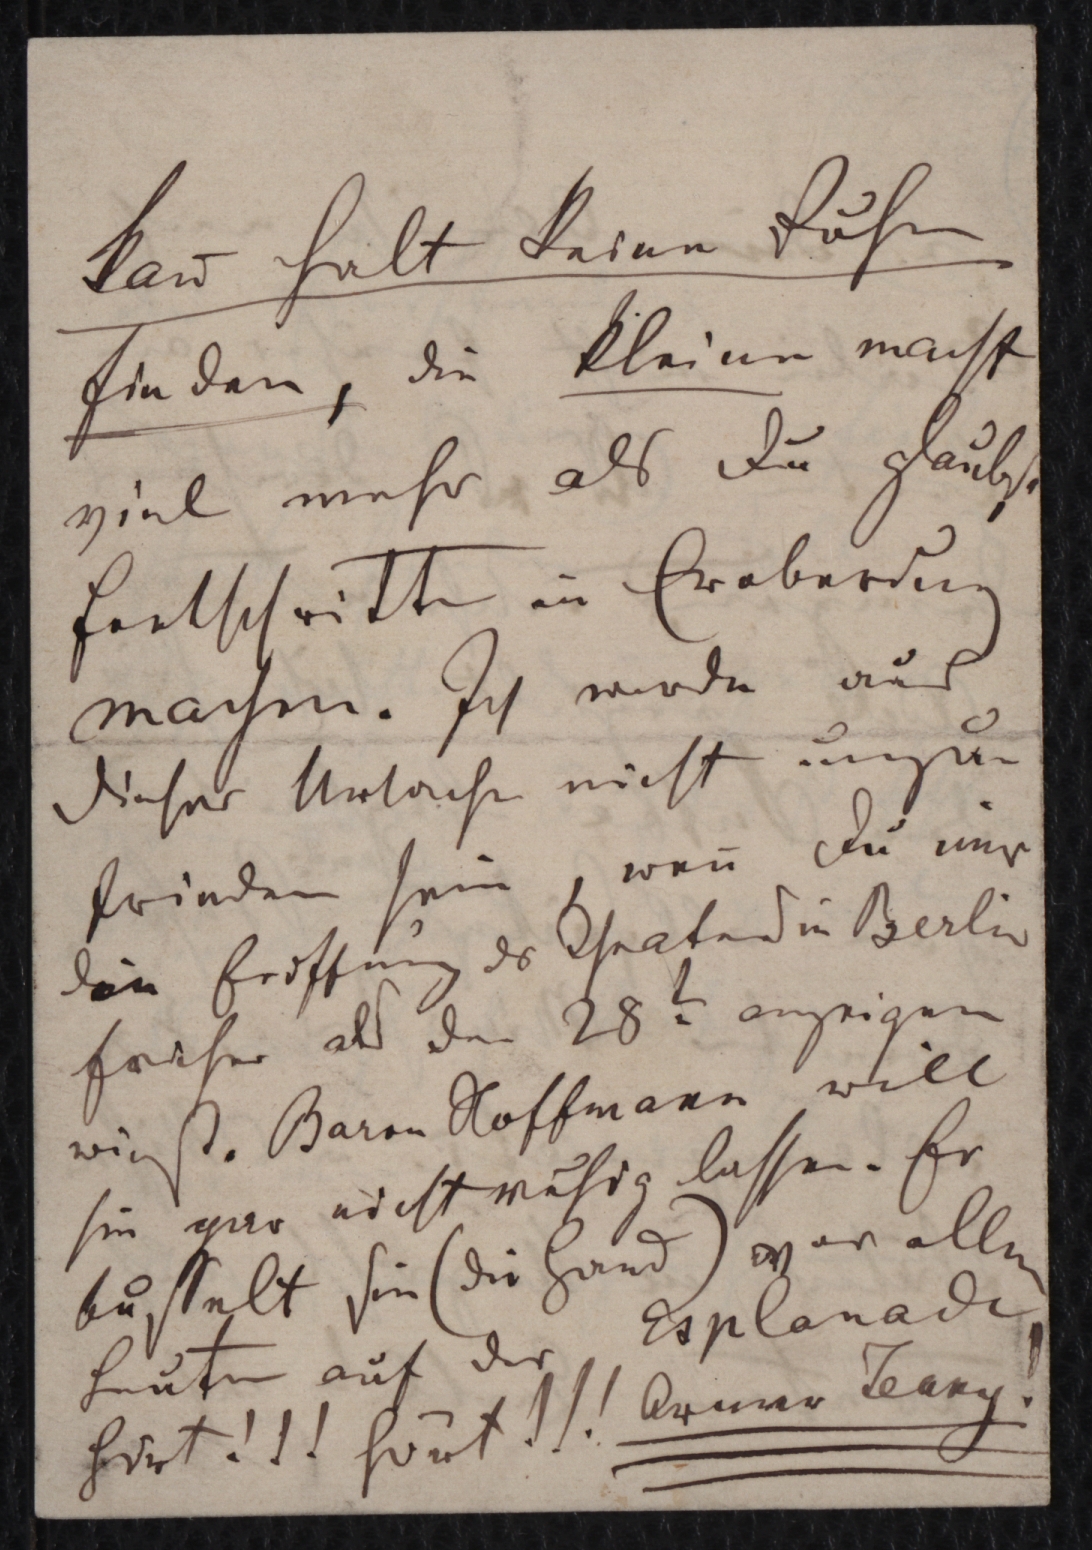 kan̄ halt keine Ruhe
finden, die kleine macht
viel mehr als Du glaubst
Fortschritte in Eroberung
machen. Ich werde aus
dieser Ursache nicht unzu
frieden sein, wen̄ Du mir
die Eröffnung des Theaters in Berlin
früher als den 28t anzeigen
wirst. Baron Hoffmann will
sie gar nicht ruhig lassen. Er
busselt sie (die Hand) vor allen
Leuten auf der Esplanade,
hört!!! hört!!! Armer Jeany!